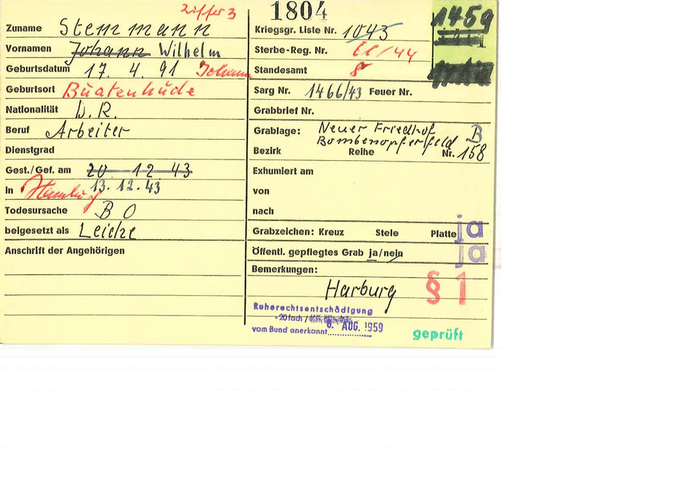 Ziffer 3
1804
1459
Zuname Stemmann
Vornamen Johann Wilhelm
Geburtsdatum 17. 4. 91 Johann
Geburtsort Buxtehude
Nationalität D.R.
Beruf Arbeiter
Dienstgrad
Gest./Gef. am 20 12 43
13.12.43
In Hamburg
Todesursache BO
beigesetzt als Leiche
Anschrift der Angehörigen
Kriegsgr. Liste Nr. 1043
Sterbe-Reg. Nr. /44
Standesamt
Sarg Nr. 1466/43 Feuer Nr.
Grabbrief Nr.
Grablage: Neuer Friedhof B
Bombenopferfeld
Bezirk Reihe Nr. 158
Exhumiert am
von
nach
Grabzeichen: Kreuz Stele Platte ja
Öffentl. gepflegtes Grab ja/nein ja
Bemerkungen:
Harburg § 1
Ruherechtsentschädigung
-20fach /
vom Bund anerkannt 6. AUG. 1959
geprüft